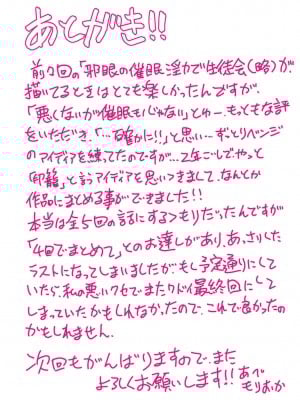 あとがき!!
前々回の「邪眼の催眠淫力で生徒会(略)」が、
描いてるときはとても楽しかったんですが、
「悪くないが催眠もじゃない」とゆー、もっともな評
をいただき、「…確かに!!」と思い…ずっとリベンジ
のアイディアを練ってたのですが…2年ごしでやっと
「印籠」と言うアイディアを思いつきまして、なんとか
作品にまとめる事ができました!!
本当は全5回の話にするつもりだったんですが
「4回でまとめて」とのお達しがあり、あっさりした
ラストになってしまいましたがもし予定通りにして
いたら、私の悪いクセでまたクドイ最終回にして
しまっていたかもしれなかったので、これで良かったの
かもしれません。
次回もがんばりますので、また
よろしくお願いします!! あべ
もりおか